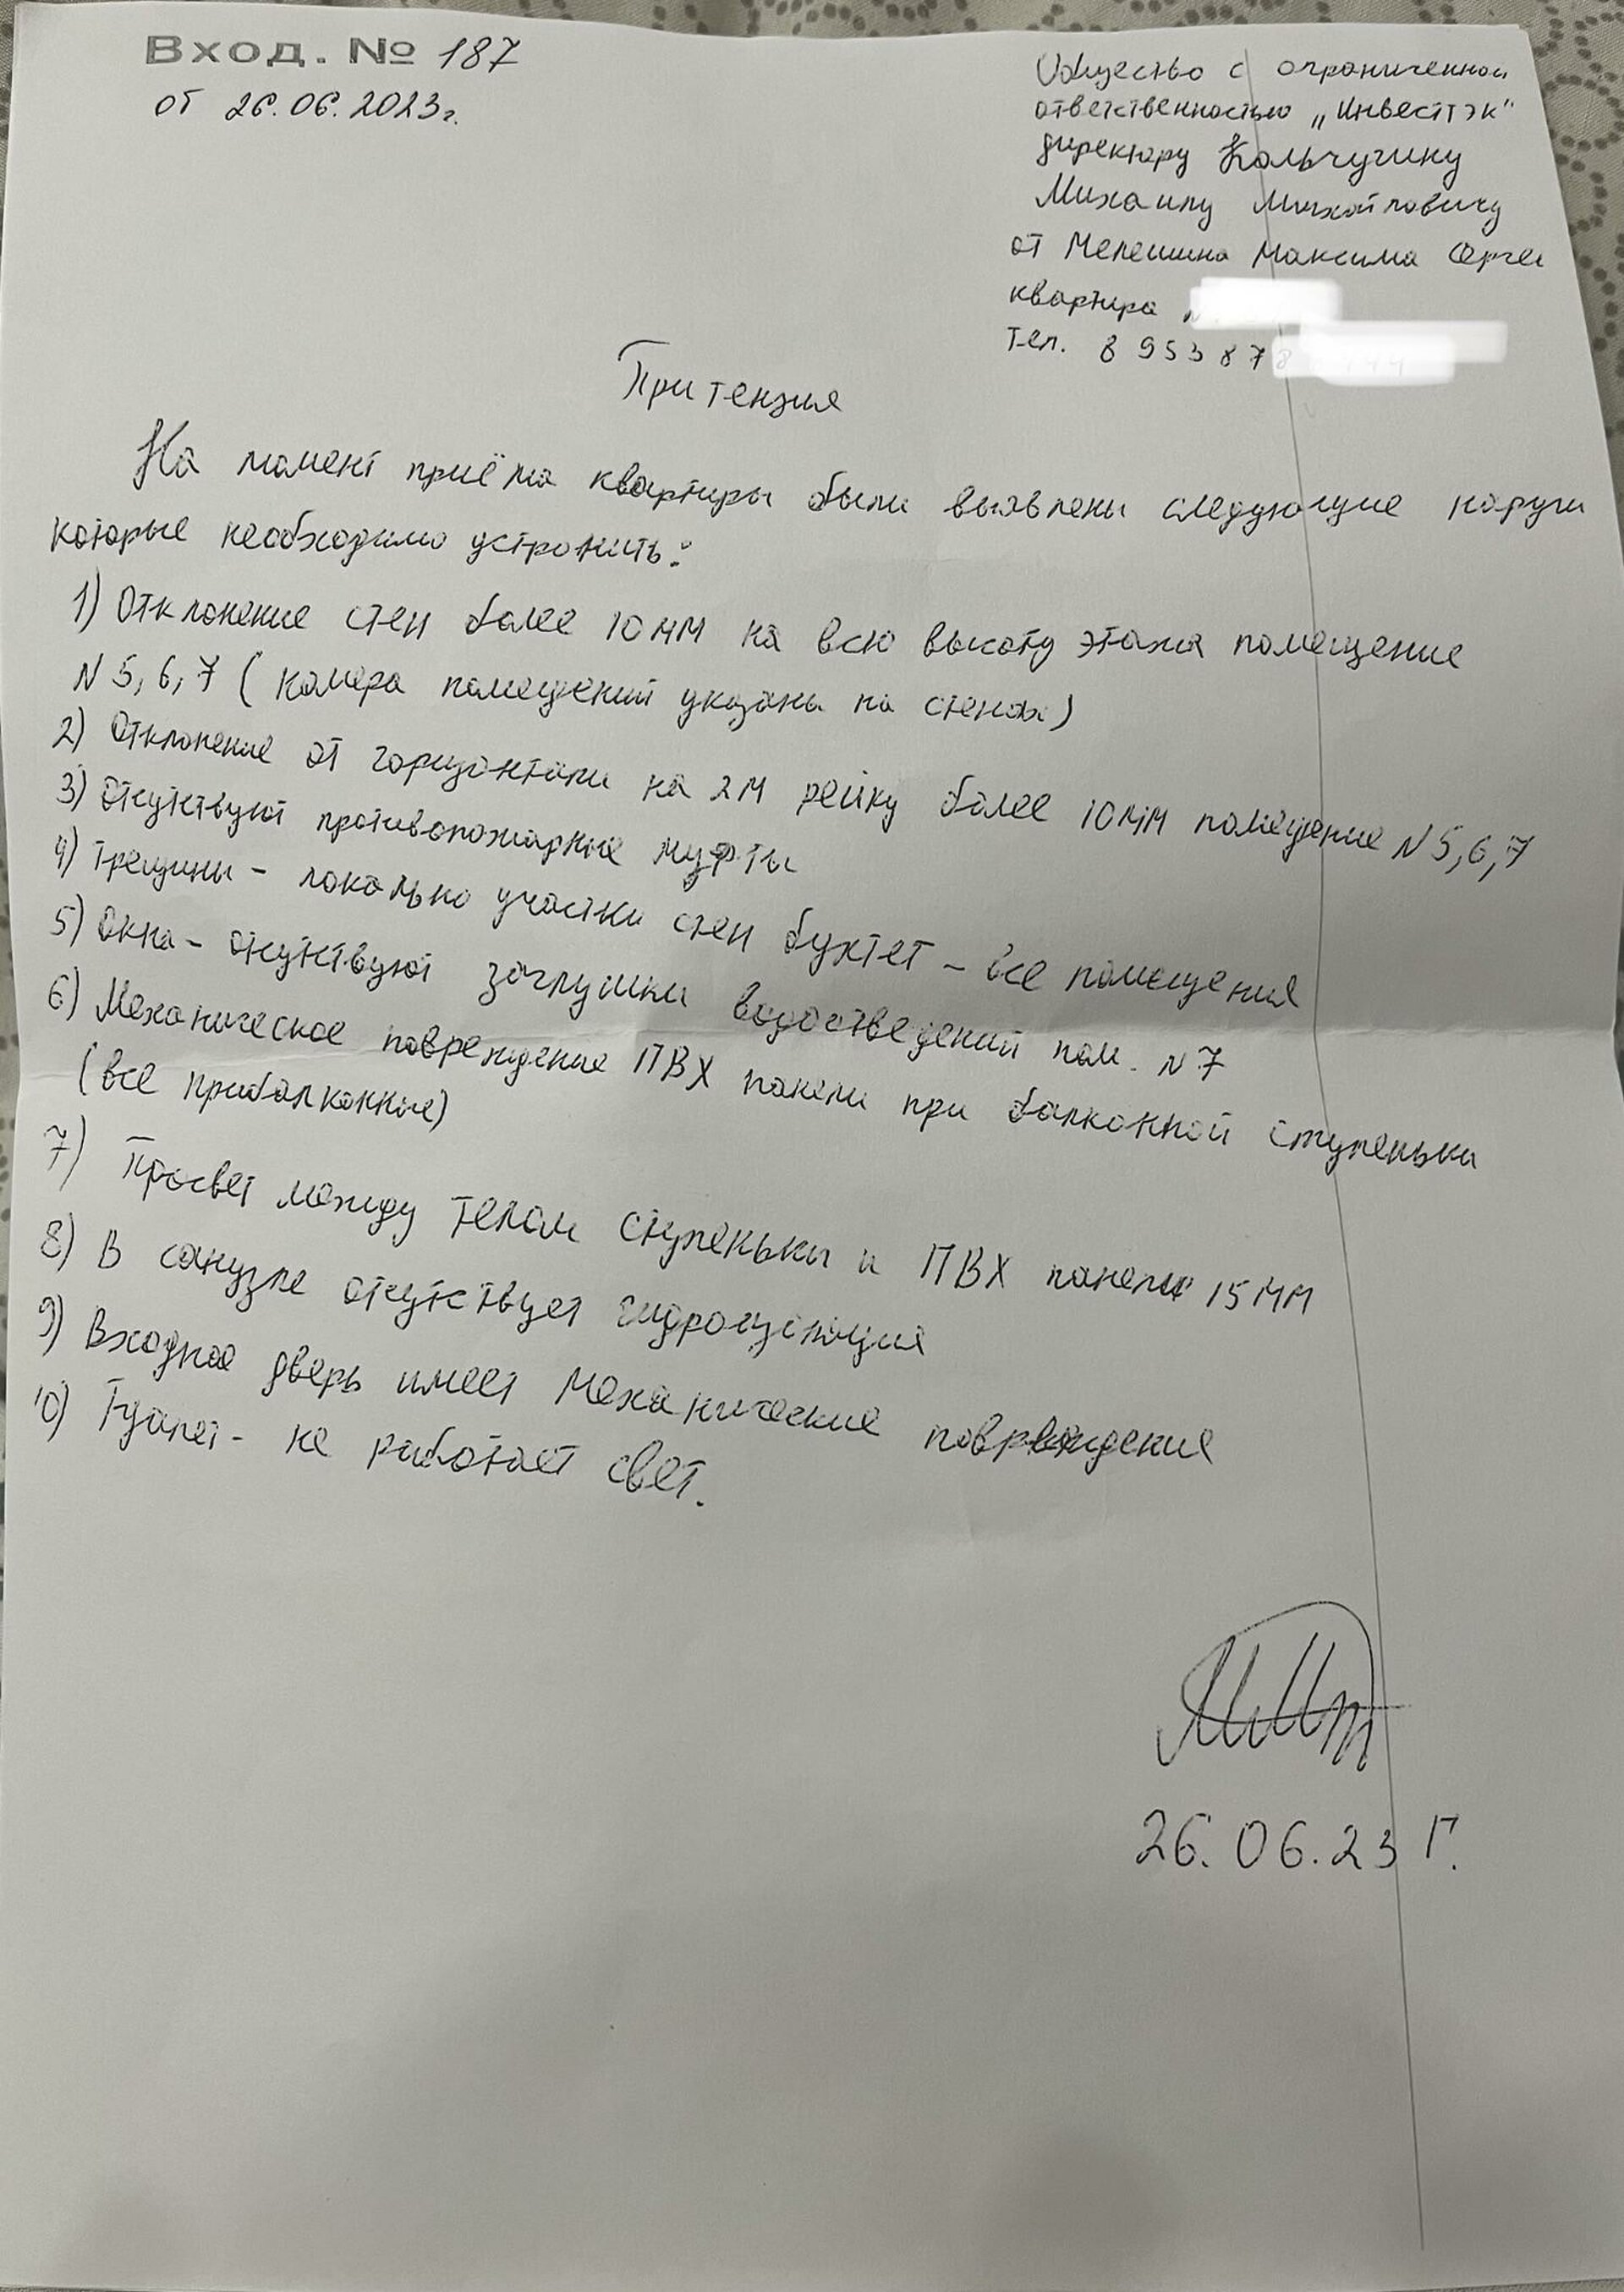 Вход. № 187
от 26.06.2023г.
Общество с ограниченной
ответственностью „Инвесттэк"
директору Кольчугину
Михаилу Михайловичу
от Мелешина Максима Серге
квартира
тел. 8 953 878
Притензия
На момент приёма квартиры были выявлены следующие наруш
которые необходимо устронить:
1) Отклонение стен более 10 мм на всю высоту этажа помещение
N 5, 6, 7 (номера помещений указаны на стенах)
2) Отклонение от горизонтали на 2м рейку более 10мм помещение N 5, 6, 7
3) Отсутствуют противопожарные муфты
4) Трещины - локально участки стен бухтет - все помещения
5) Окна - отсутствуют заглушки водоотведений пом. N 7
6) Механическое повреждение ПВХ панели при балконной ступеньки
(все прибалконные)
7) Просвет между телом ступеньки и ПВХ панели 15 мм
8) В санузле отсутствует гидроизоляция
9) Входная дверь имеет механические повреждения
10) Туалет - не работает свет.
26.06.23 г.